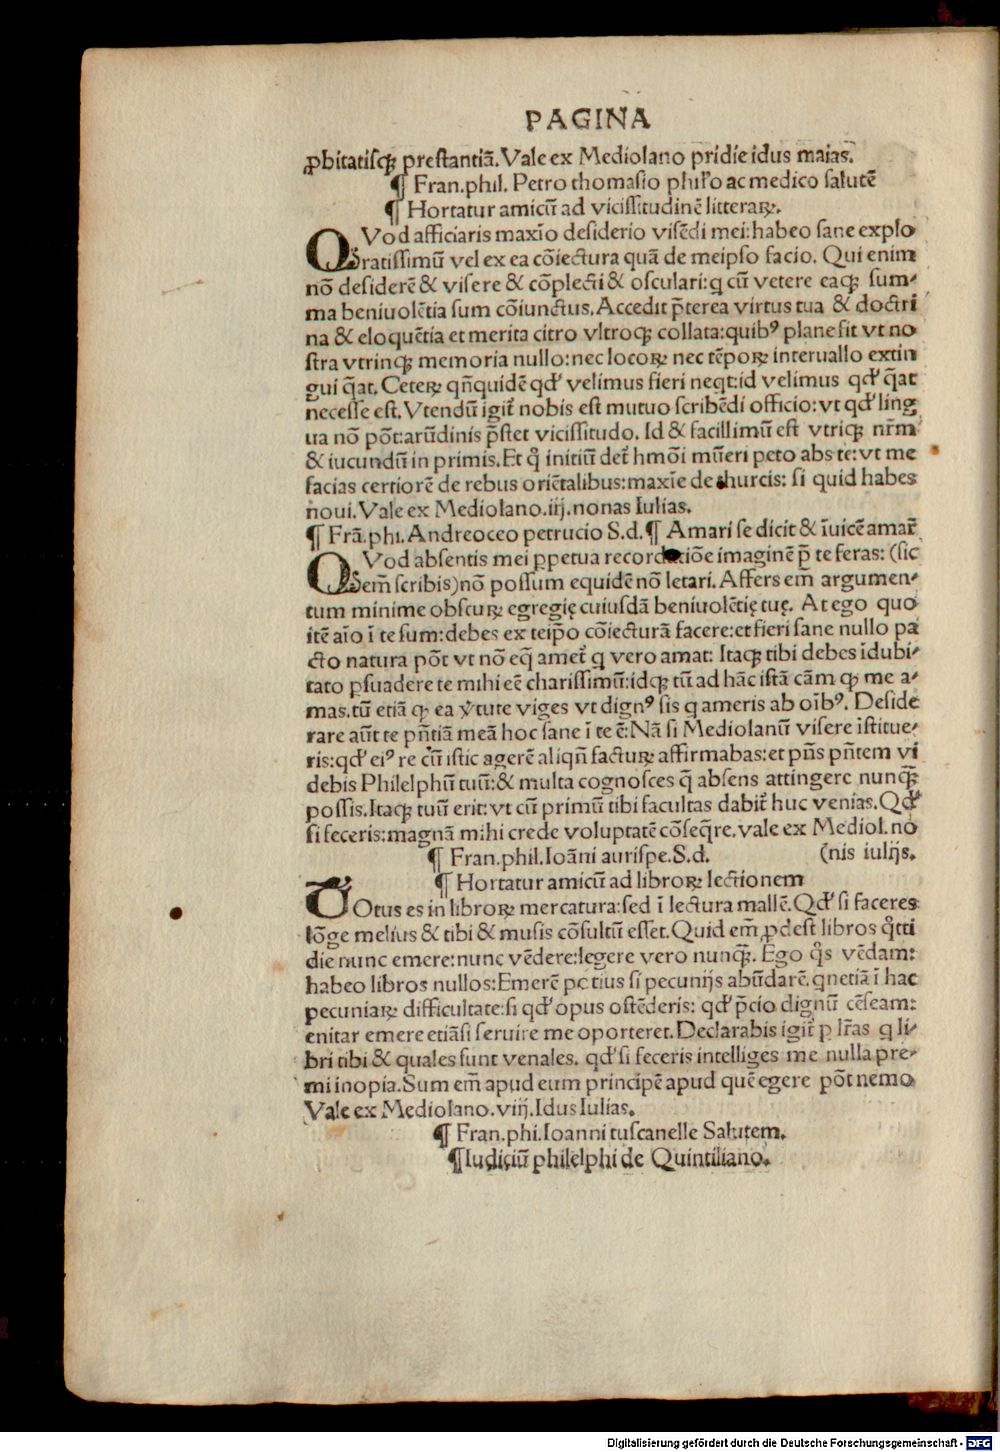 PAGINA
ꝓbitatiſqꝫ preſtantiã. Vale ex Mediolano pridie idus maias.
¶ Fran. phil. Petro thomaſio philo ac medico ſalutẽ
¶ Hortatur amicũ ad viciſſitudinẽ litteraꝝ.
QVod afficiaris maxĩo deſiderio viſẽdi mei: habeo ſane explo
ratiſſimũ vel ex ea cõiectura quã de meipſo facio. Qui enim
nõ deſiderẽ & viſere & cõplecti & oſculari: q cũ vetere eaqꝫ ſum⸗
ma beniuolẽtia ſum cõiunctus. Accedit p̃terea virtus tua & doctri
na & eloquẽtia et merita citro vltroqꝫ collata: quibꝰ plane fit vt no
ſtra vtrinqꝫ memoria nullo: nec locoꝝ nec tẽpoꝝ interuallo extin
gui q̃at. Ceteꝝ qñquidẽ qđ velimus fieri neqt: id velimus qđ q̃at
neceſſe eſt. Vtendũ igit̃ nobis eſt mutuo ſcribẽdi officio: vt qđ ling
ua nõ põt: arũdinis p̃ſtet viciſſitudo. Id & facillimũ eſt vtriqꝫ nr̃m
& iucundũ in primis. Et q̊ initiũ det̃ hmõi mũeri peto abs te: vt me
facias certiorẽ de rebus oriẽtalibus: maxĩe de thurcis: ſi quid habes
noui. Vale ex Mediolano. iij. nonas Iulias.
¶ Frã. phi. Andreoceo petrucio S. d. ¶ Amari ſe dicit & ĩuicẽ amar̃
QVod abſentis mei ꝑpetua recordatiõe imaginẽ p̃ te feras: (ſic
em̃ ſcribis) nõ poſſum equidẽ nõ letari. Affers em̃ argumen⸗
tum minime obſcuꝝ egregię cuiuſdã beniuolẽtię tuę. At ego quo
itẽ aĩo ĩ te ſum: debes ex teip̃o cõiecturã facere: et fieri ſane nullo pa
cto natura põt vt nõ eq̃ amet̃ q vero amat: Itaqꝫ tibi debes ĩdubi⸗
tato ꝑſuadere te mihi eẽ chariſſimũ: idqꝫ tũ ad hãc iſtã cãm qꝫ me a⸗
mas. tũ etiã qꝫ ea ṽtute viges vt dignꝰ ſis q ameris ab oĩbꝰ. Deſide
rare aũt te pñtiã meã hoc ſane ĩ te ẽ: Nã ſi Mediolanũ viſere ĩſtitue⸗
ris: qđ eiꝰ re cũ iſtic agerẽ aliqñ factuꝝ affirmabas: et pñs pñtem vi
debis Philelphũ tuũ: & multa cognoſces q̃ abſens attingere nunqꝫ̃
poſſis. Itaqꝫ tuũ erit: vt cũ primũ tibi facultas dabit̃ huc venias. Qđ
ſi feceris: magnã mihi crede voluptatẽ cõſeq̃re. vale ex Mediol. no
¶ Fran. phil. Ioãni auriſpe. S. d. (nis iulijs.
¶ Hortatur amicũ ad libroꝝ lectionem
TOtus es in libroꝝ mercatura: ſed ĩ lectura mallẽ. Qđ ſi faceres
lõge melius & tibi & muſis cõſultũ eſſet. Quid em̃ ꝓdeſt libros q̊tti
die nunc emere: nunc vẽdere: legere vero nunqꝫ̃. Ego q̊s vẽdam:
habeo libros nullos: Emerẽ potius ſi pecunijs abũdarẽ. qnetiã ĩ hac
pecuniaꝝ difficultate: ſi qđ opus oſtẽderis: qđ p̃cio dignũ cẽſeam:
enitar emere etiãſi ſeruire me oporteret. Declarabis igit̃ ꝑ lr̃as q li⸗
bri tibi & quales ſunt venales. qđ ſi feceris intelliges me nulla pre⸗
mi inopia. Sum em̃ apud eum principẽ apud quẽ egere põt nemo
Vale ex Mediolano. viij. Idus Iulias.
¶ Fran. phi. Ioanni tuſcanelle Salutem.
¶ Iudiciũ philelphi de Quintiliano.
Digitalisierung gefördert durch die Deutsche Forschungsgemeinschaft - DFG